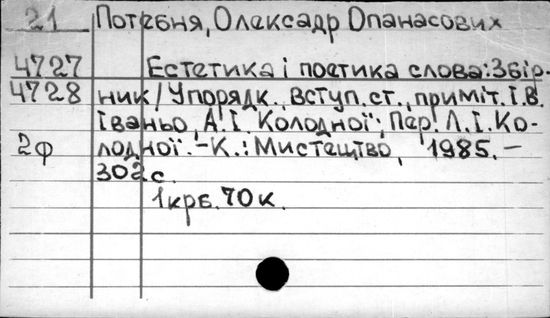 21 Потебня, Олексадр Опанасових
4727 Естетика і поетика слова: Збір-
4728 ник / Упорядк., вступ. ст., приміт. І.В.
Іваньо, А.І. Колодної; Пер. Л.І. Ко-
2ф лодної. - К.: Мистецтво, 1985. -
302 с.
1крб. 70к.